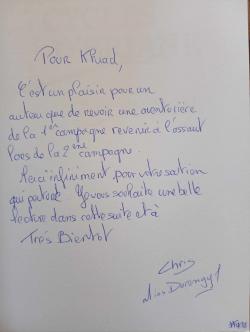 Pour Khad,
C'est un plaisir pour un
auteur que de revoir une aventurière
de la 1ère campagne revenir à l'assaut
lors de la 2ème campagne.
Merci infiniment pour votre soutien
qui perdure. Je vous souhaite une belle
lecture dans cette suite et à
Très Bientôt
Chris